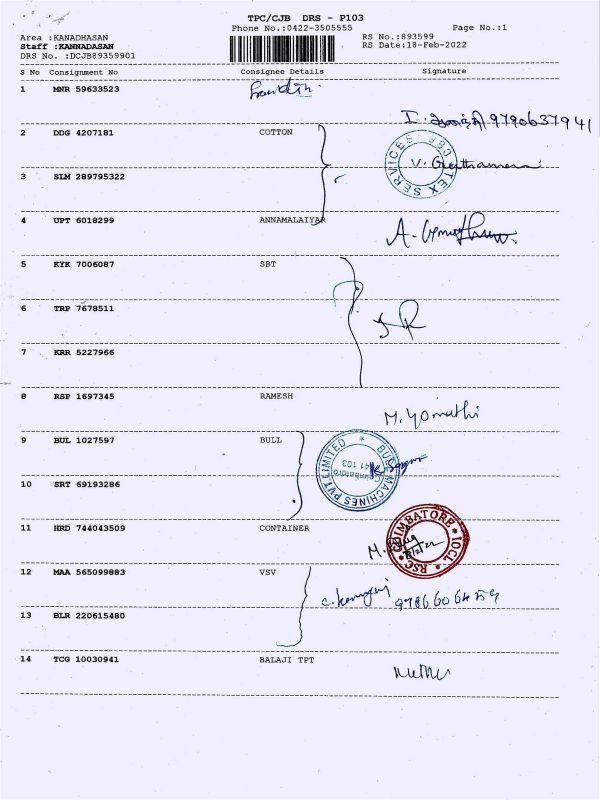 TPC/CJB DRS - P103
Phone No.:0422-3505555 Page No.:1
Area :KANADHASAN RS No.:893599
Staff :KANNADASAN RS Date:18-Feb-2022
DRS No. :DCJB89359901
S No Consignment No Consignee Details Signature
1 MNR 59633523
9790637941
2 DDG 4207181 COTTON
3 SLM 289795322
4 UPT 6018299 ANNAMALAIYAR
5 KYK 7006087 SBT
6 TRP 7678511
7 KRR 5227966
8 RSP 1697345 RAMESH
M. Yomathi
9 BUL 1027597 BULL
BULL MACHINES PVT LIMITED
Coimbatore
641 103
10 SRT 69193286
11 HRD 744043509 CONTAINER
COIMBATORE IOCL RSC
12 MAA 565099883 VSV
13 BLR 220615480
14 TCG 10030941 BALAJI TPT